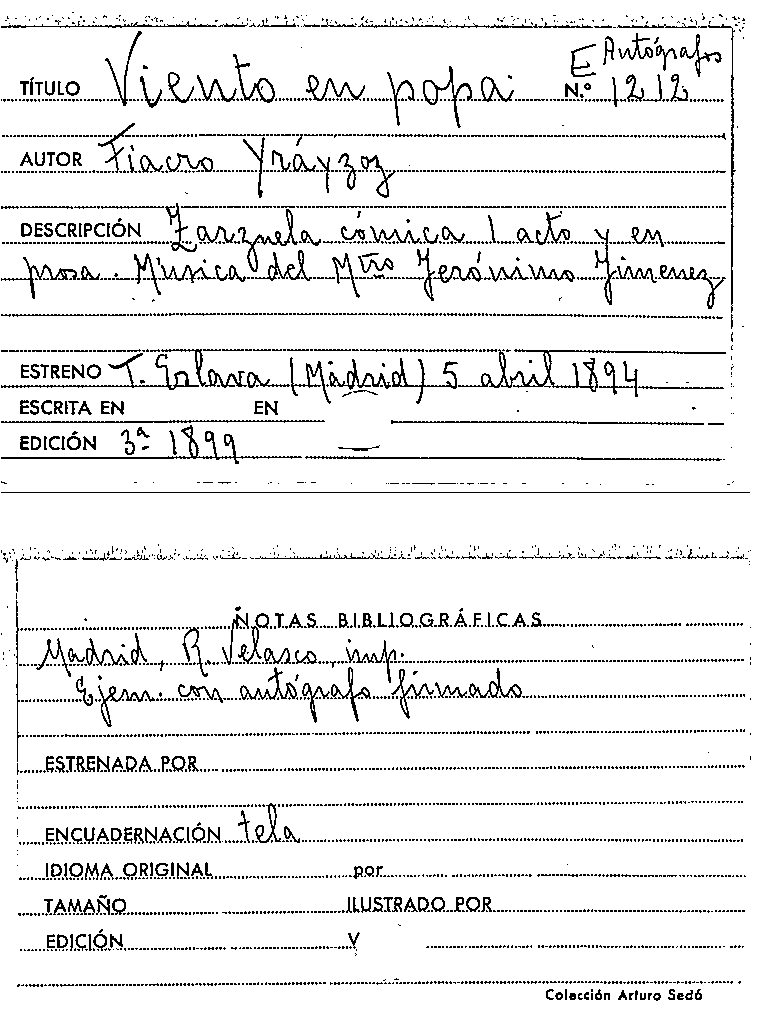 E Autógrafos
TÍTULO Viento en popa N.º 1212
AUTOR Fiacro Yráyzoz
DESCRIPCIÓN Zarzuela cómica 1 acto y en
prosa. Música del Mtro Jerónimo Jimenez
ESTRENO T. Eslava (Madrid) 5 abril 1894
ESCRITA EN EN
EDICIÓN 3ª 1899 —
NOTAS BIBLIOGRÁFICAS
Madrid, R. Velasco, imp.
Ejem. con autógrafo firmado
ESTRENADA POR
ENCUADERNACIÓN tela
IDIOMA ORIGINAL por
TAMAÑO ILUSTRADO POR
EDICIÓN V
Colección Arturo Sedó